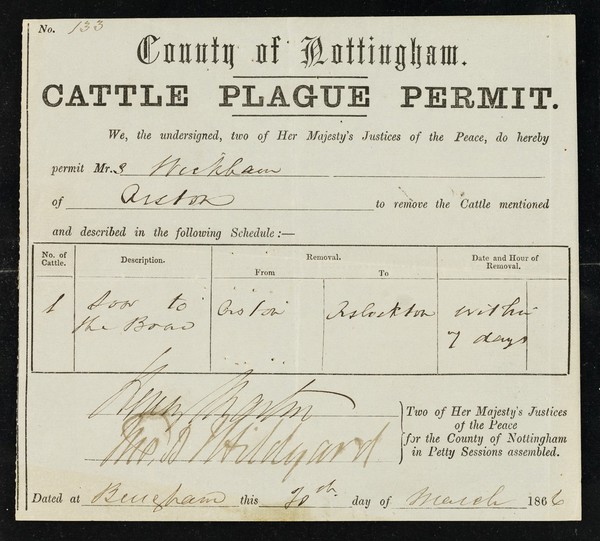 No. 133
County of Nottingham.
CATTLE PLAGUE PERMIT.
We, the undersigned, two of Her Majesty's Justices of the Peace, do hereby
permit Mr.s Wickham
of Orston to remove the Cattle mentioned
and described in the following Schedule :—
No. of Cattle. Description. Removal. Date and Hour of Removal.
From To
1 Sow to the Boar Orston Aslockton within 7 days
Thos. B T Hildyard
Two of Her Majesty's Justices
of the Peace
for the County of Nottingham
in Petty Sessions assembled.
Dated at Bingham this day of March 1866